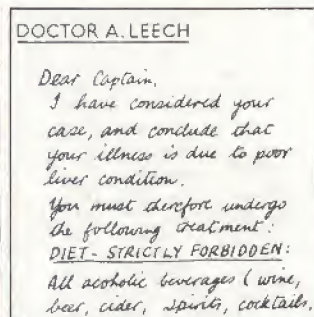 DOCTOR A. LEECH
Dear Captain,
I have considered your
case, and conclude that
your illness is due to poor
liver condition.
You must therefore undergo
the following treatment:
DIET - STRICTLY FORBIDDEN:
All acoholic beverages (wine,
beer, cider, spirits, cocktails,